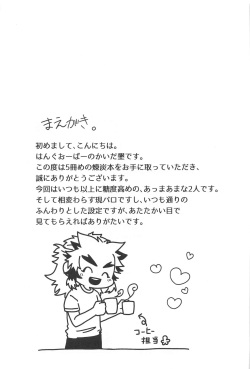 まえがき。
初めまして、こんにちは。
はんぐおーばーのかいだ墨です。
この度は5冊めの煉炭本をお手に取っていただき、
誠にありがとうございます。
今回はいつも以上に糖度高めの、あっまあまな2人です。
そして相変わらず現パロですし、いつも通りの
ふんわりとした設定ですが、あたたかい目で
見てもらえればありがたいです。
コーヒー
担当